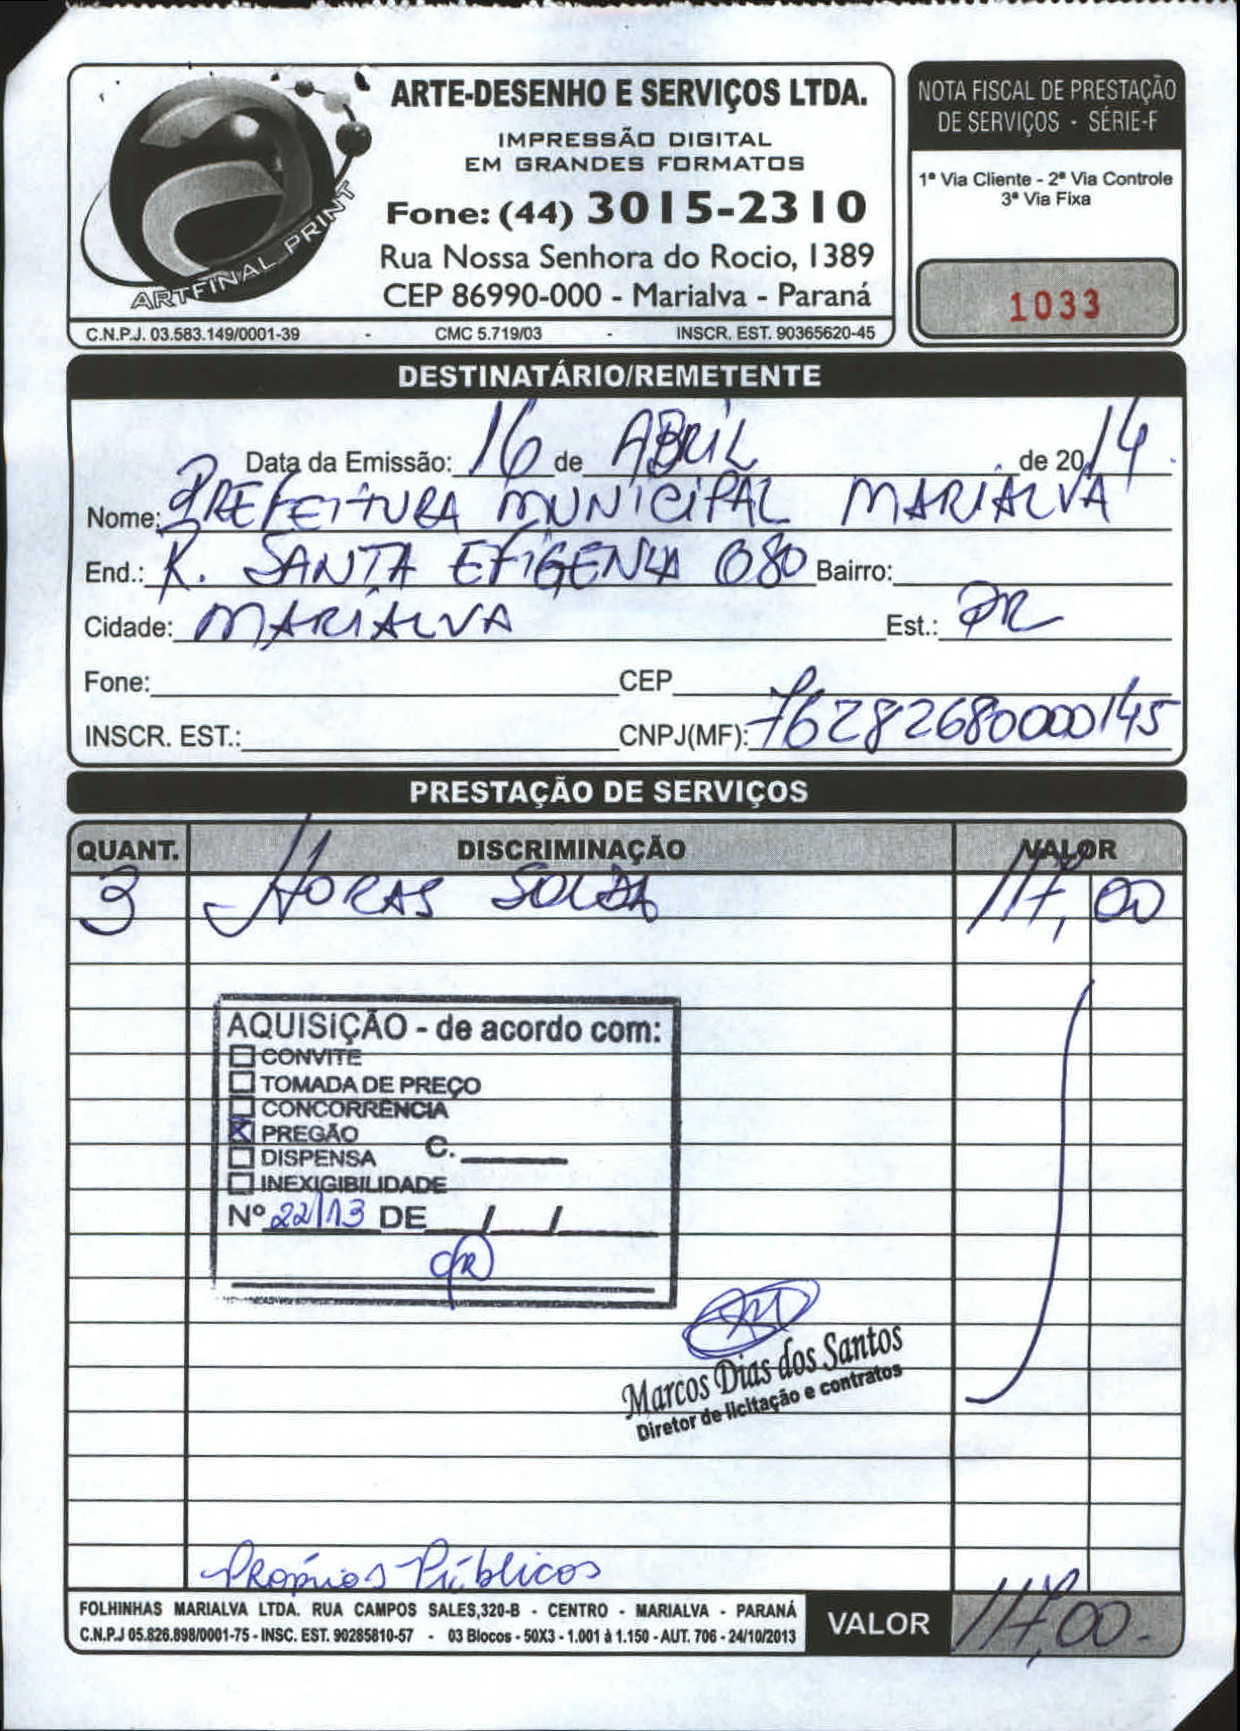 ARTE-DESENHO E SERVIÇOS LTDA.
IMPRESSÃO DIGITAL
EM GRANDES FORMATOS
Fone: (44) 3015-2310
Rua Nossa Senhora do Rocio, 1389
CEP 86990-000 - Marialva - Paraná
ARTFINAL PRINT
C.N.P.J. 03.583.149/0001-39 - CMC 5.719/03 - INSCR. EST. 90365620-45
NOTA FISCAL DE PRESTAÇÃO
DE SERVIÇOS - SÉRIE-F
1ª Via Cliente - 2ª Via Controle
3ª Via Fixa
1033
DESTINATÁRIO/REMETENTE
Data da Emissão: 16 de ABRIL de 2014
Nome: PREFEITURA MUNICIPAL MARIALVA
End.: R. SANTA EFIGENIA 680 Bairro:
Cidade: MARIALVA Est.: PR
Fone: CEP
INSCR. EST.: CNPJ(MF): 76282680000145
PRESTAÇÃO DE SERVIÇOS
QUANT. DISCRIMINAÇÃO VALOR
3 HORAS SOLDA 117,00
AQUISIÇÃO - de acordo com:
CONVITE
TOMADA DE PREÇO
CONCORRÊNCIA
X PREGÃO
DISPENSA C.
INEXIGIBILIDADE
Nº 22/13 DE / /
Marcos Dias dos Santos
Diretor de licitação e contratos
Próprios Públicos
FOLHINHAS MARIALVA LTDA. RUA CAMPOS SALES,320-B - CENTRO - MARIALVA - PARANÁ
C.N.P.J 05.826.898/0001-75 - INSC. EST. 90285810-57 - 03 Blocos - 50X3 - 1.001 à 1.150 - AUT. 706 - 24/10/2013
VALOR 117,00